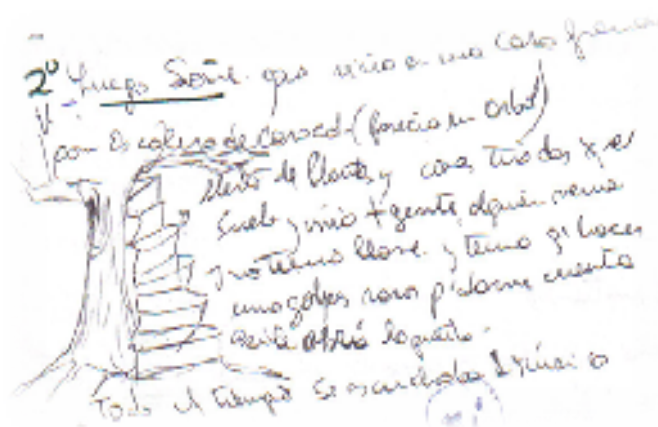 2º Luego Soñé que vivía en una casa grande
con Escalera de caracol (parecía un árbol)
lleno de Plantas y cosas tiradas x el
suelo y vivía + gente, alguien venía
y no tenía llave y tenía q' hacer
unos golpes raros p' darme cuenta
abrí la puerta.
Todo el tiempo se escuchaba